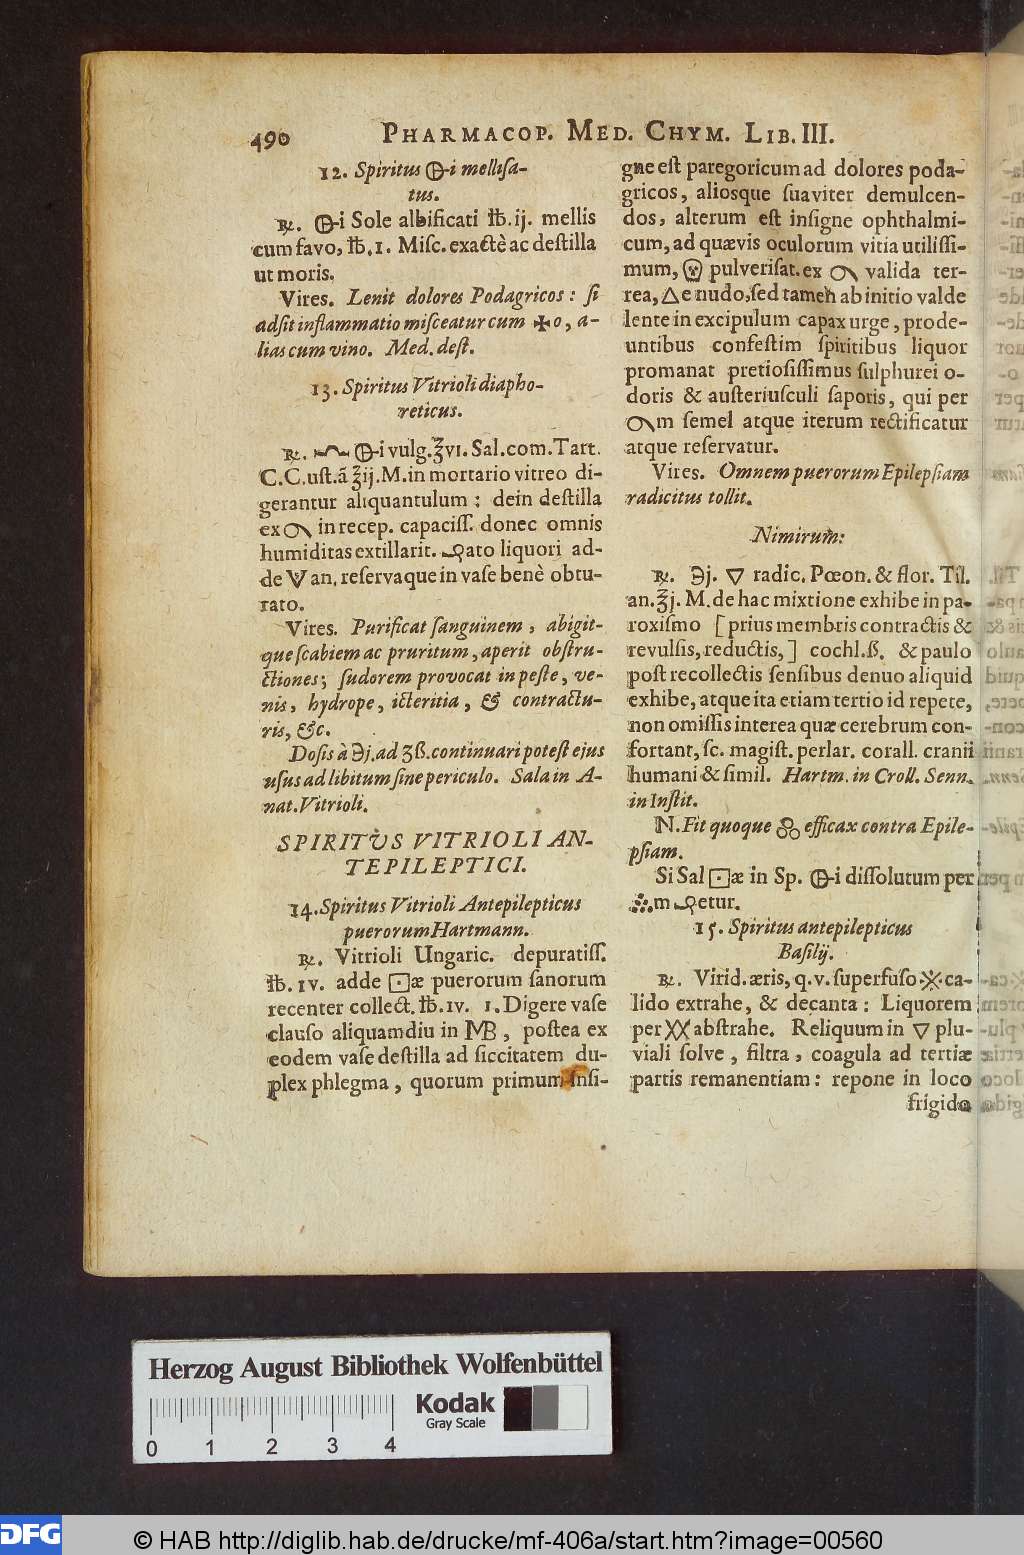 490 PHARMACOP. MED. CHYM. LIB. III.
12. Spiritus 🜖-i mellisa-
tus.
℞. 🜖-i Sole albificati ℔. ij. mellis
cum favo, ℔. 1. Misc. exactè ac destilla
ut moris.
Vires. Lenit dolores Podagricos: si
adsit inflammatio misceatur cum ✠o, a-
lias cum vino. Med. dest.
13. Spiritus Vitrioli diapho-
reticus.
℞. 🜖-i vulg. ℥vı. Sal. com. Tart.
C. C. ust. ā ℥ij. M. in mortario vitreo di-
gerantur aliquantulum: dein destilla
ex in recep. capaciss. donec omnis
humiditas extillarit. ato liquori ad-
de 🜈 an. reservaque in vase benè obtu-
rato.
Vires. Purificat sanguinem, abigit-
que scabiem ac pruritum, aperit obstru-
ctiones; sudorem provocat in peste, ve-
nis, hydrope, icteritia, & contractu-
ris, &c.
Dosis à ℈j. ad ʒß. continuari potest ejus
usus ad libitum sine periculo. Sala in A-
nat. Vitrioli.
SPIRITUS VITRIOLI AN-
TEPILEPTICI.
14. Spiritus Vitrioli Antepilepticus
puerorum Hartmann.
℞. Vitrioli Ungaric. depuratiss.
℔. ıv. adde ⊡æ puerorum sanorum
recenter collect. ℔. ıv. 1. Digere vase
clauso aliquamdiu in MB, postea ex
eodem vase destilla ad siccitatem du-
plex phlegma, quorum primum insi-
gne est paregoricum ad dolores poda-
gricos, aliosque suaviter demulcen-
dos, alterum est insigne ophthalmi-
cum, ad quævis oculorum vitia utilissi-
mum, pulverisat. ex valida ter-
rea, △e nudo, sed tamen ab initio valde
lente in excipulum capax urge, prode-
untibus confestim spiritibus liquor
promanat pretiosissimus sulphurei o-
doris & austeriusculi saporis, qui per
m semel atque iterum rectificatur
atque reservatur.
Vires. Omnem puerorum Epilepsiam
radicitus tollit.
Nimirum:
℞. ℈j. ▽ radic. Pœon. & flor. Til.
an. ℥j. M. de hac mixtione exhibe in pa-
roxismo [prius membris contractis &
revulsis, reductis,] cochl. ß. & paulo
post recollectis sensibus denuo aliquid
exhibe, atque ita etiam tertio id repete,
non omissis interea quæ cerebrum con-
fortant, sc. magist. perlar. corall. cranii
humani & simil. Hartm. in Croll. Senn.
in Instit.
N. Fit quoque efficax contra Epile-
psiam.
Si Sal ⊡æ in Sp. 🜖-i dissolutum per
m etur.
15. Spiritus antepilepticus
Basilij.
℞. Virid. æris, q. v. superfuso ※ ca-
lido extrahe, & decanta: Liquorem
per XX abstrahe. Reliquum in ▽ plu-
viali solve, filtra, coagula ad tertiæ
partis remanentiam: repone in loco
frigido
Herzog August Bibliothek Wolfenbüttel
Kodak
Gray Scale
0 1 2 3 4
DFG © HAB http://diglib.hab.de/drucke/mf-406a/start.htm?image=00560